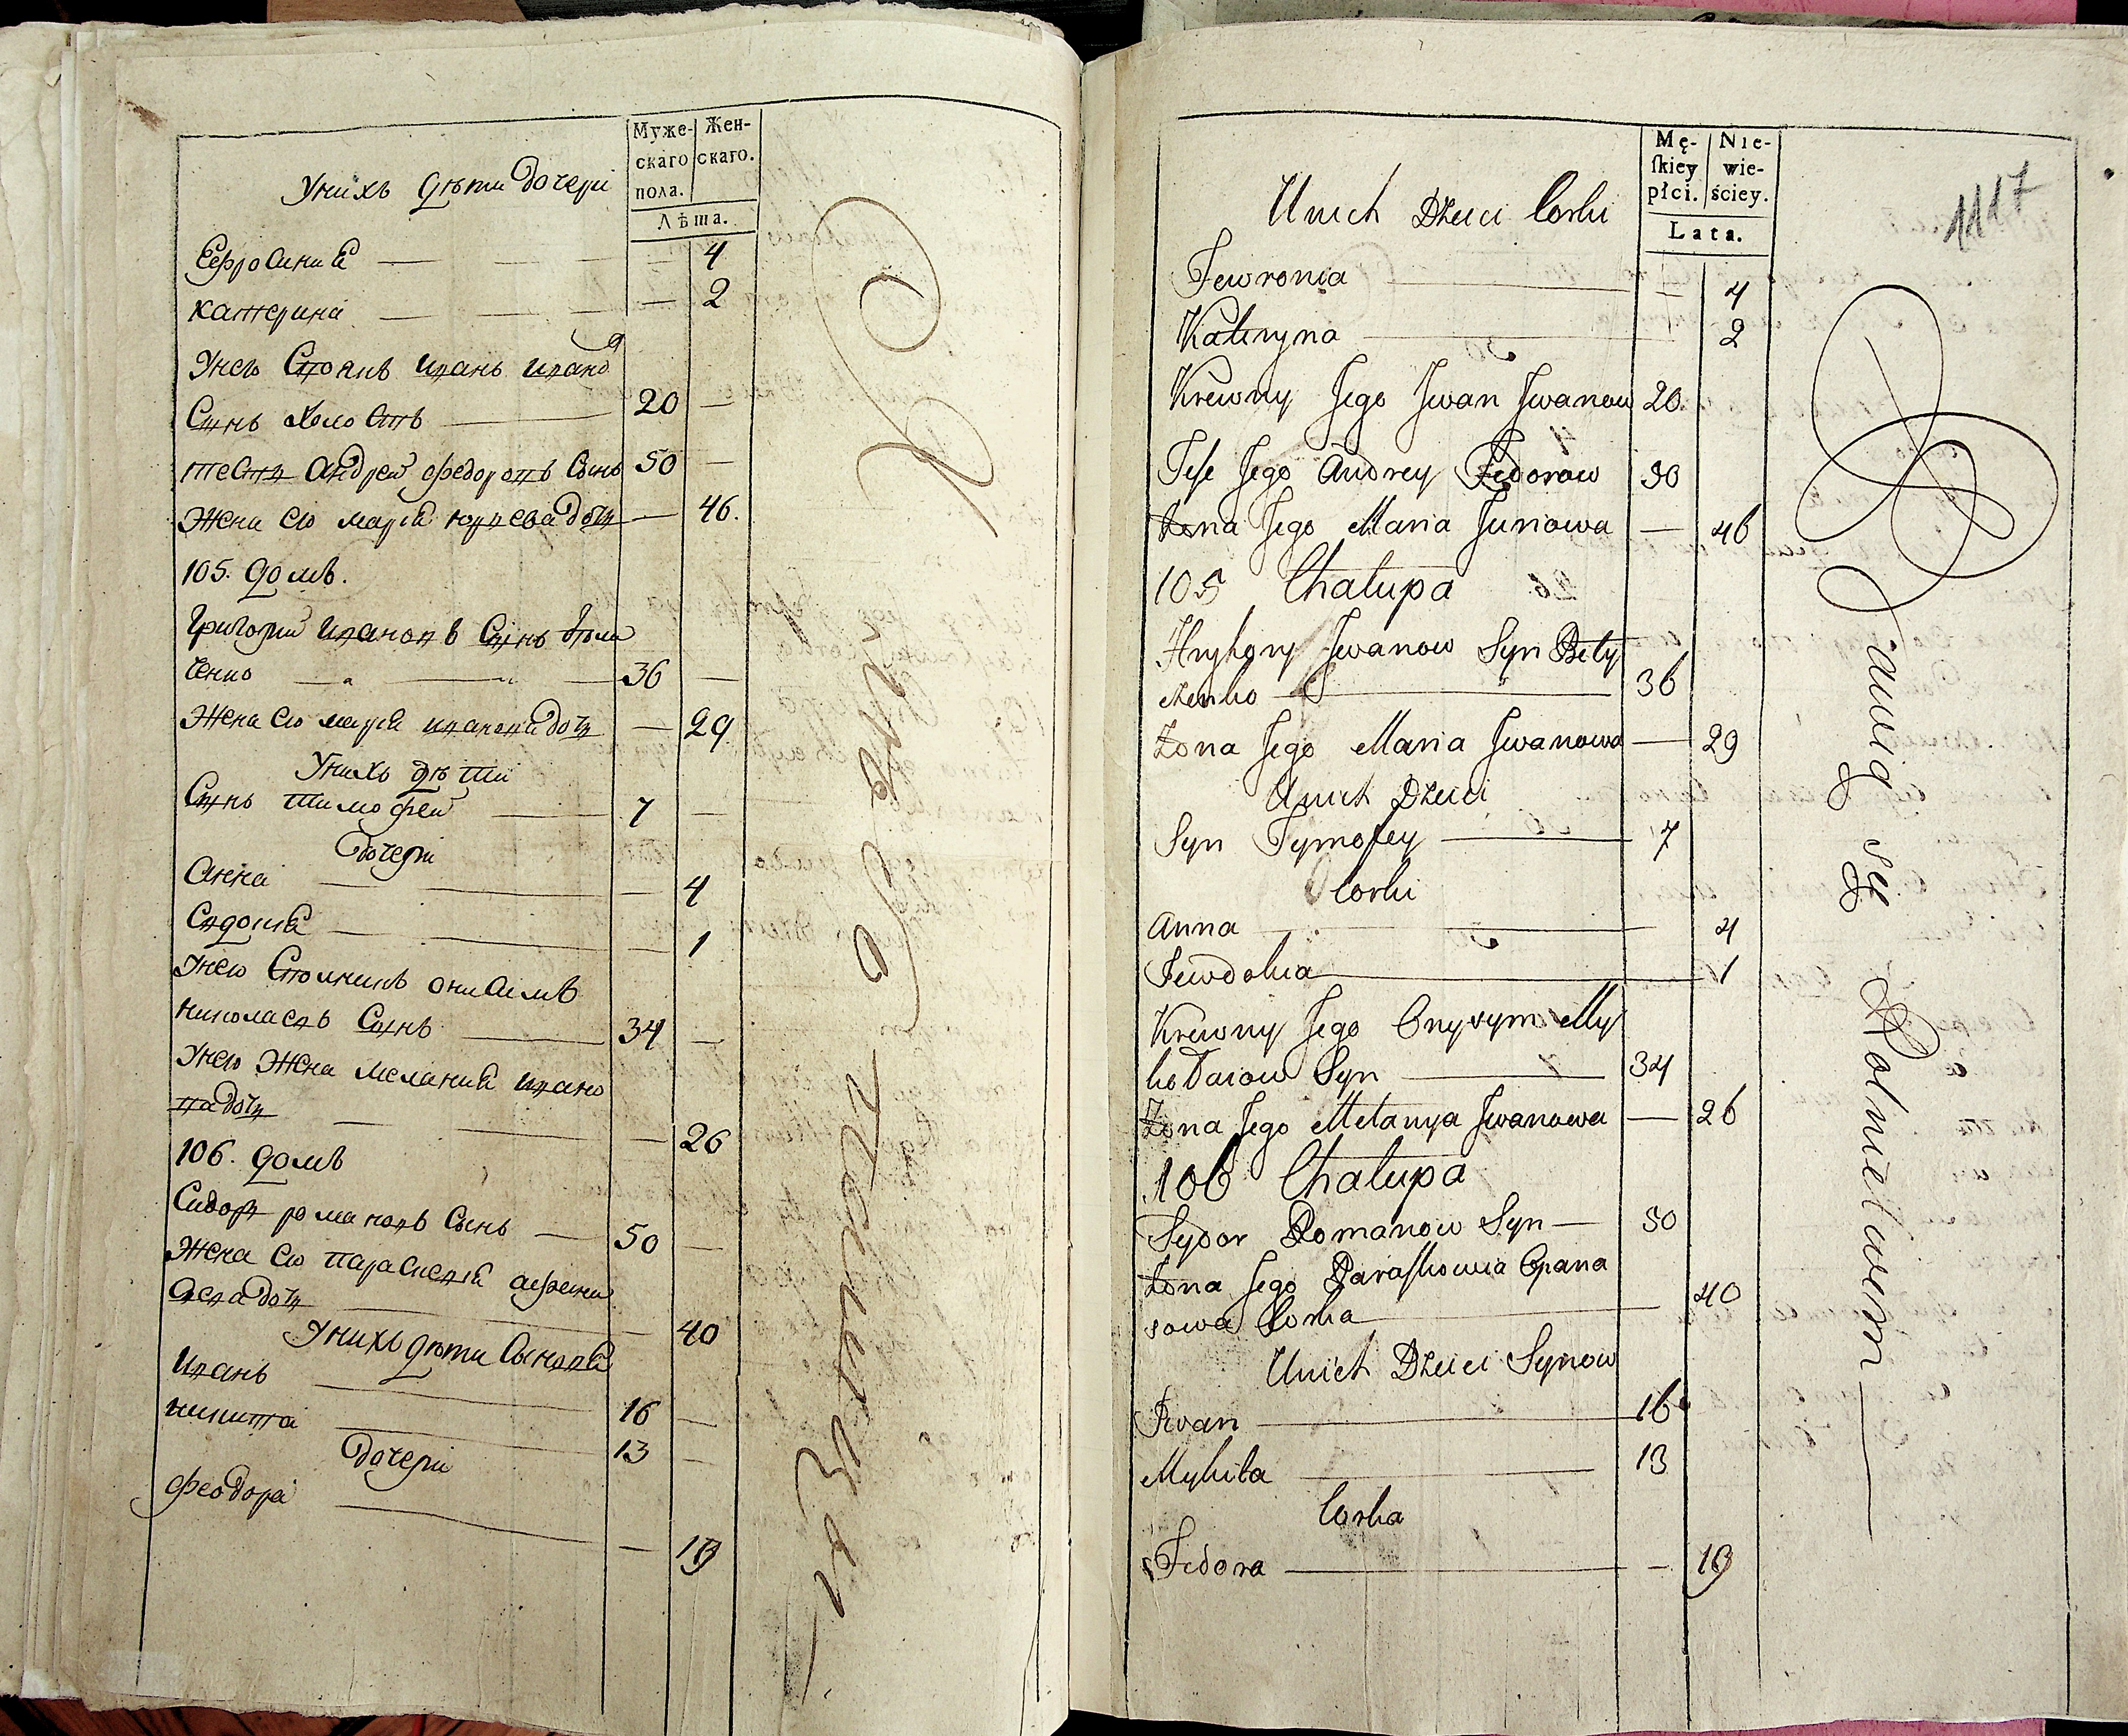 Муже-
скаго
пола.
Жен-
скаго.
Лѣта.
Унихъ дѣти дочери
Ефросиния 4
катерина 2
Унего Стоянъ иванъ ивано
Сынъ холостъ 20
тесть андрей федоровъ Сынъ 50
Жена его мария юрьева дочь 46.
105. домъ.
Григорий ивановъ Сынъ
ченко 36
Жена его мария иванова дочь 29
Унихъ дѣти
Сынъ тимофей 7
дочери
анна 4
Евдокия 1
Унего онисимъ
николаевъ Сынъ 34
Унего Жена мелания ивано
ва дочь 26
106. домъ
Сидоръ романовъ Сынъ 50
Жена его парасковия афана
сева дочь 40
Унихъ дѣти Сыновя
иванъ 16
никита 13
дочери
феодора 19
Mę-
ſkiey
płci.
Nie-
wie-
ściey.
Lata.
1117
Unich Dzieci Corki
Fewronia 4
Kateryna 2
Krewny Jego Jwan Jwanow 20
Teść Jego Andrey Fedorow 50
Żona Jego Maria Juriowa 46
105 Chałupa
Hryhory Jwanow Syn Biły
czenko 36
Żona Jego Maria Jwanowa 29
Unich Dzieci
Syn Tymofey 7
Corki
Anna 4
Jewdokia 1
Krewny Jego Onysym My
kołaiow Syn 34
Żona Jego Mełanya Jwanowa 26
106 Chałupa
Sydor Romanow Syn 50
Żona Jego Paraſkowia Opana
sowa Corka 40
Unich Dzieci Synow
Jwan 16
Mykita 13
Corka
Fedora 19